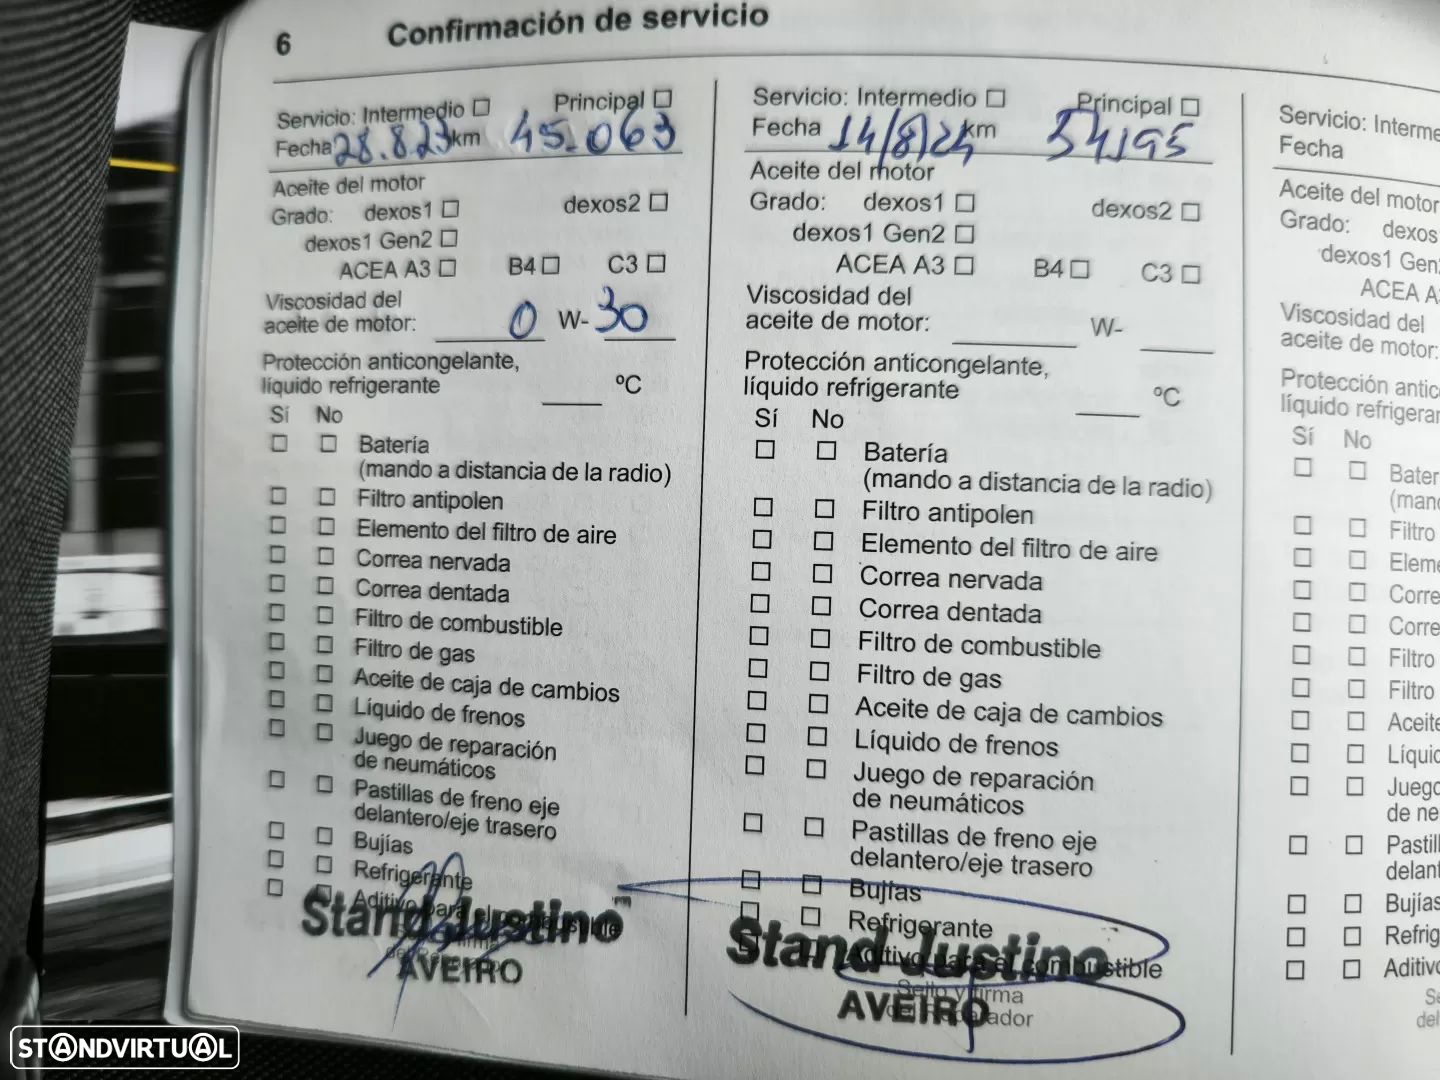 6 Confirmación de servicio
Servicio: Intermedio Principal
Fecha 28.8.23 km 45.063
Aceite del motor
Grado: dexos1 dexos2
dexos1 Gen2
ACEA A3 B4 C3
Viscosidad del
aceite de motor: 0 W- 30
Protección anticongelante,
líquido refrigerante ºC
Sí No
Batería
(mando a distancia de la radio)
Filtro antipolen
Elemento del filtro de aire
Correa nervada
Correa dentada
Filtro de combustible
Filtro de gas
Aceite de caja de cambios
Líquido de frenos
Juego de reparación
de neumáticos
Pastillas de freno eje
delantero/eje trasero
Bujías
Refrigerante
Aditivo para el combustible
Stand Justino
AVEIRO
Servicio: Intermedio Principal
Fecha 14/8/24 km 54195
Aceite del motor
Grado: dexos1 dexos2
dexos1 Gen2
ACEA A3 B4 C3
Viscosidad del
aceite de motor: W-
Protección anticongelante,
líquido refrigerante ºC
Sí No
Batería
(mando a distancia de la radio)
Filtro antipolen
Elemento del filtro de aire
Correa nervada
Correa dentada
Filtro de combustible
Filtro de gas
Aceite de caja de cambios
Líquido de frenos
Juego de reparación
de neumáticos
Pastillas de freno eje
delantero/eje trasero
Bujías
Refrigerante
Aditivo para el combustible
Stand Justino
Sello y firma
AVEIRO
del Reparador
Servicio: Interme
Fecha
Aceite del motor
Grado: dexos
dexos1 Gen
ACEA A
Viscosidad del
aceite de motor:
Protección antic
líquido refrigerar
Sí No
Bater
(mand
Filtro
Eleme
Corre
Corre
Filtro
Filtro
Aceite
Líquid
Juego
de ne
Pastill
delant
Bujías
Refrig
Aditivo
Se
del
STANDVIRTUAL